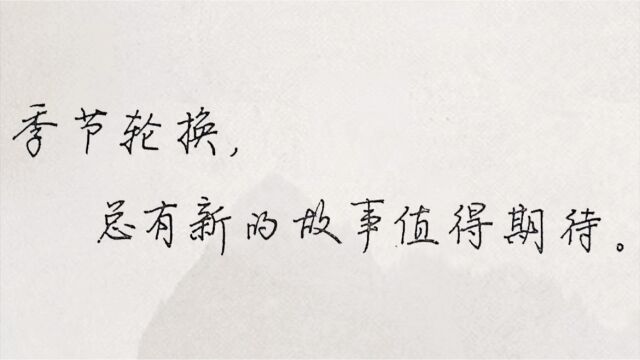 季节轮换,
总有新的故事值得期待。